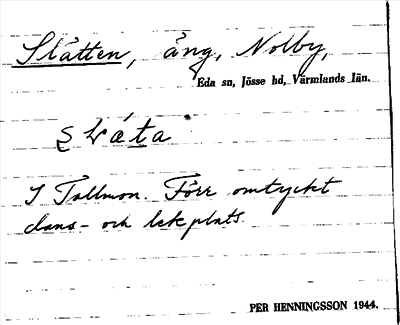 Slåtten, äng, Nolby,
Eda sn, Jösse hd, Värmlands län.
I Tallmon. Förr omtyckt
dans- och lekplats.
PER HENNINGSSON 1944.